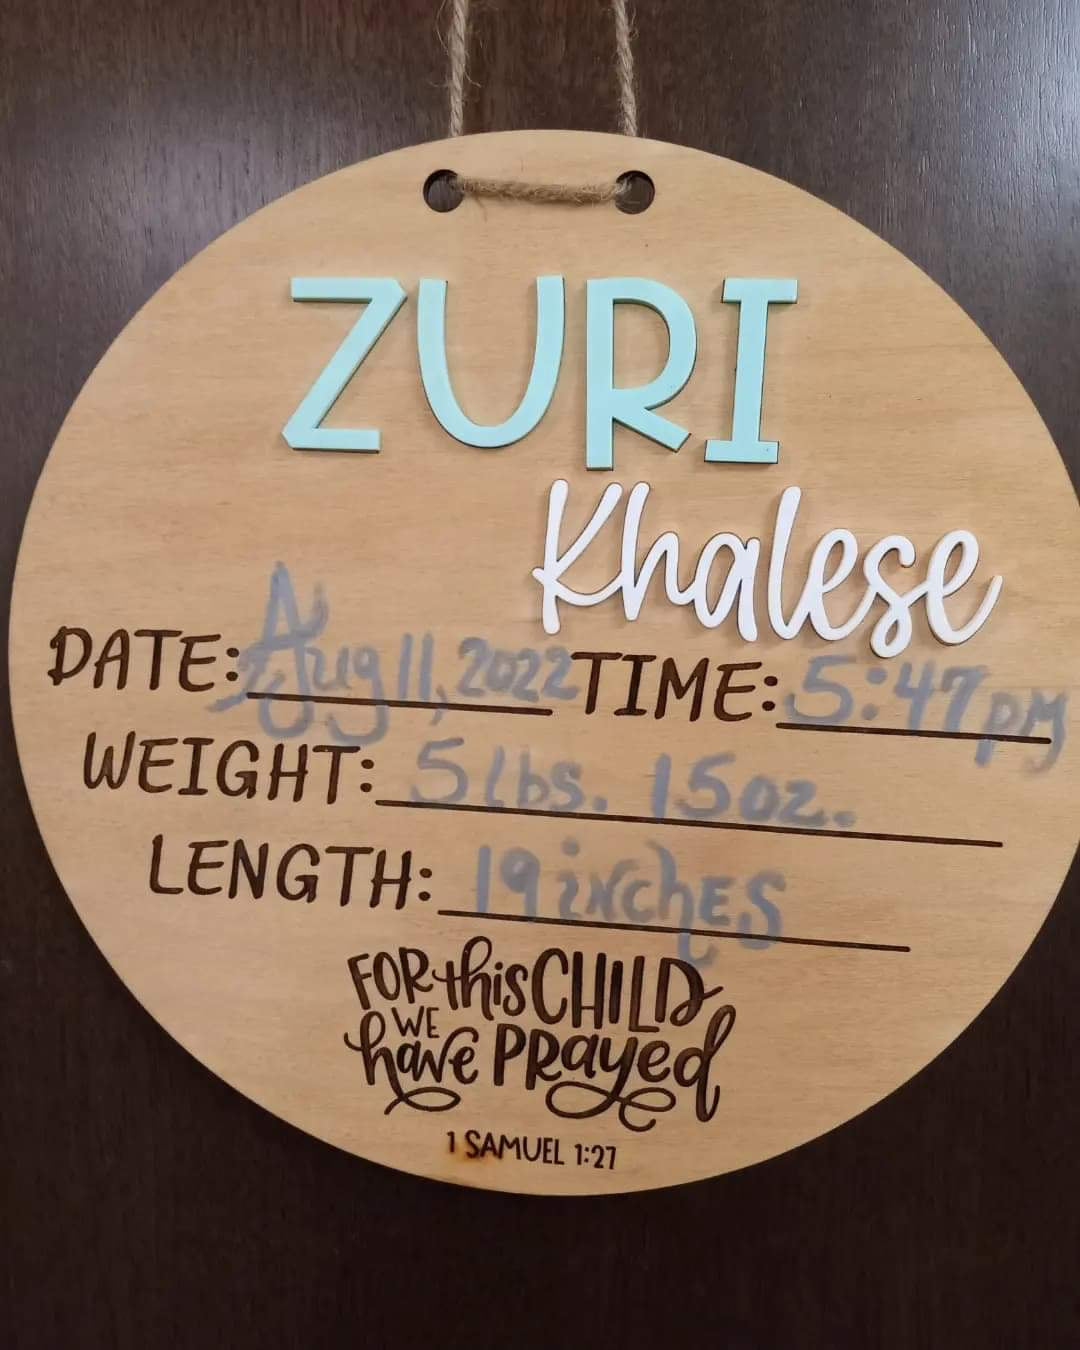 ZURI
Khalese
DATE: Aug 11, 2022 TIME: 5:47 pm
WEIGHT: 5 lbs. 15 oz.
LENGTH: 19 inches
FOR this CHILD
WE
have PRayed
1 SAMUEL 1:27